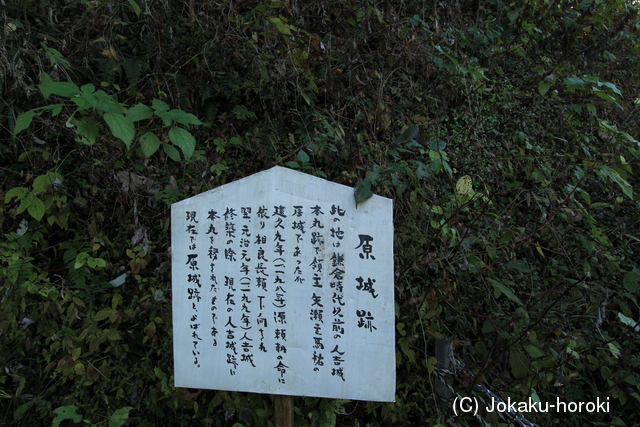 原城跡
此の地は鎌倉時代以前の人吉城
本丸跡で領主矢瀬主馬祐の
居城であったが
建久九年(一一九八年)源頼朝の命に
依り相良長頼下向され
翌元治元年(一一九九年)人吉城
修築の際現在の人吉城跡に
本丸を移されたものである
現在では原城跡とよばれている。
(C) Jokaku-horoki